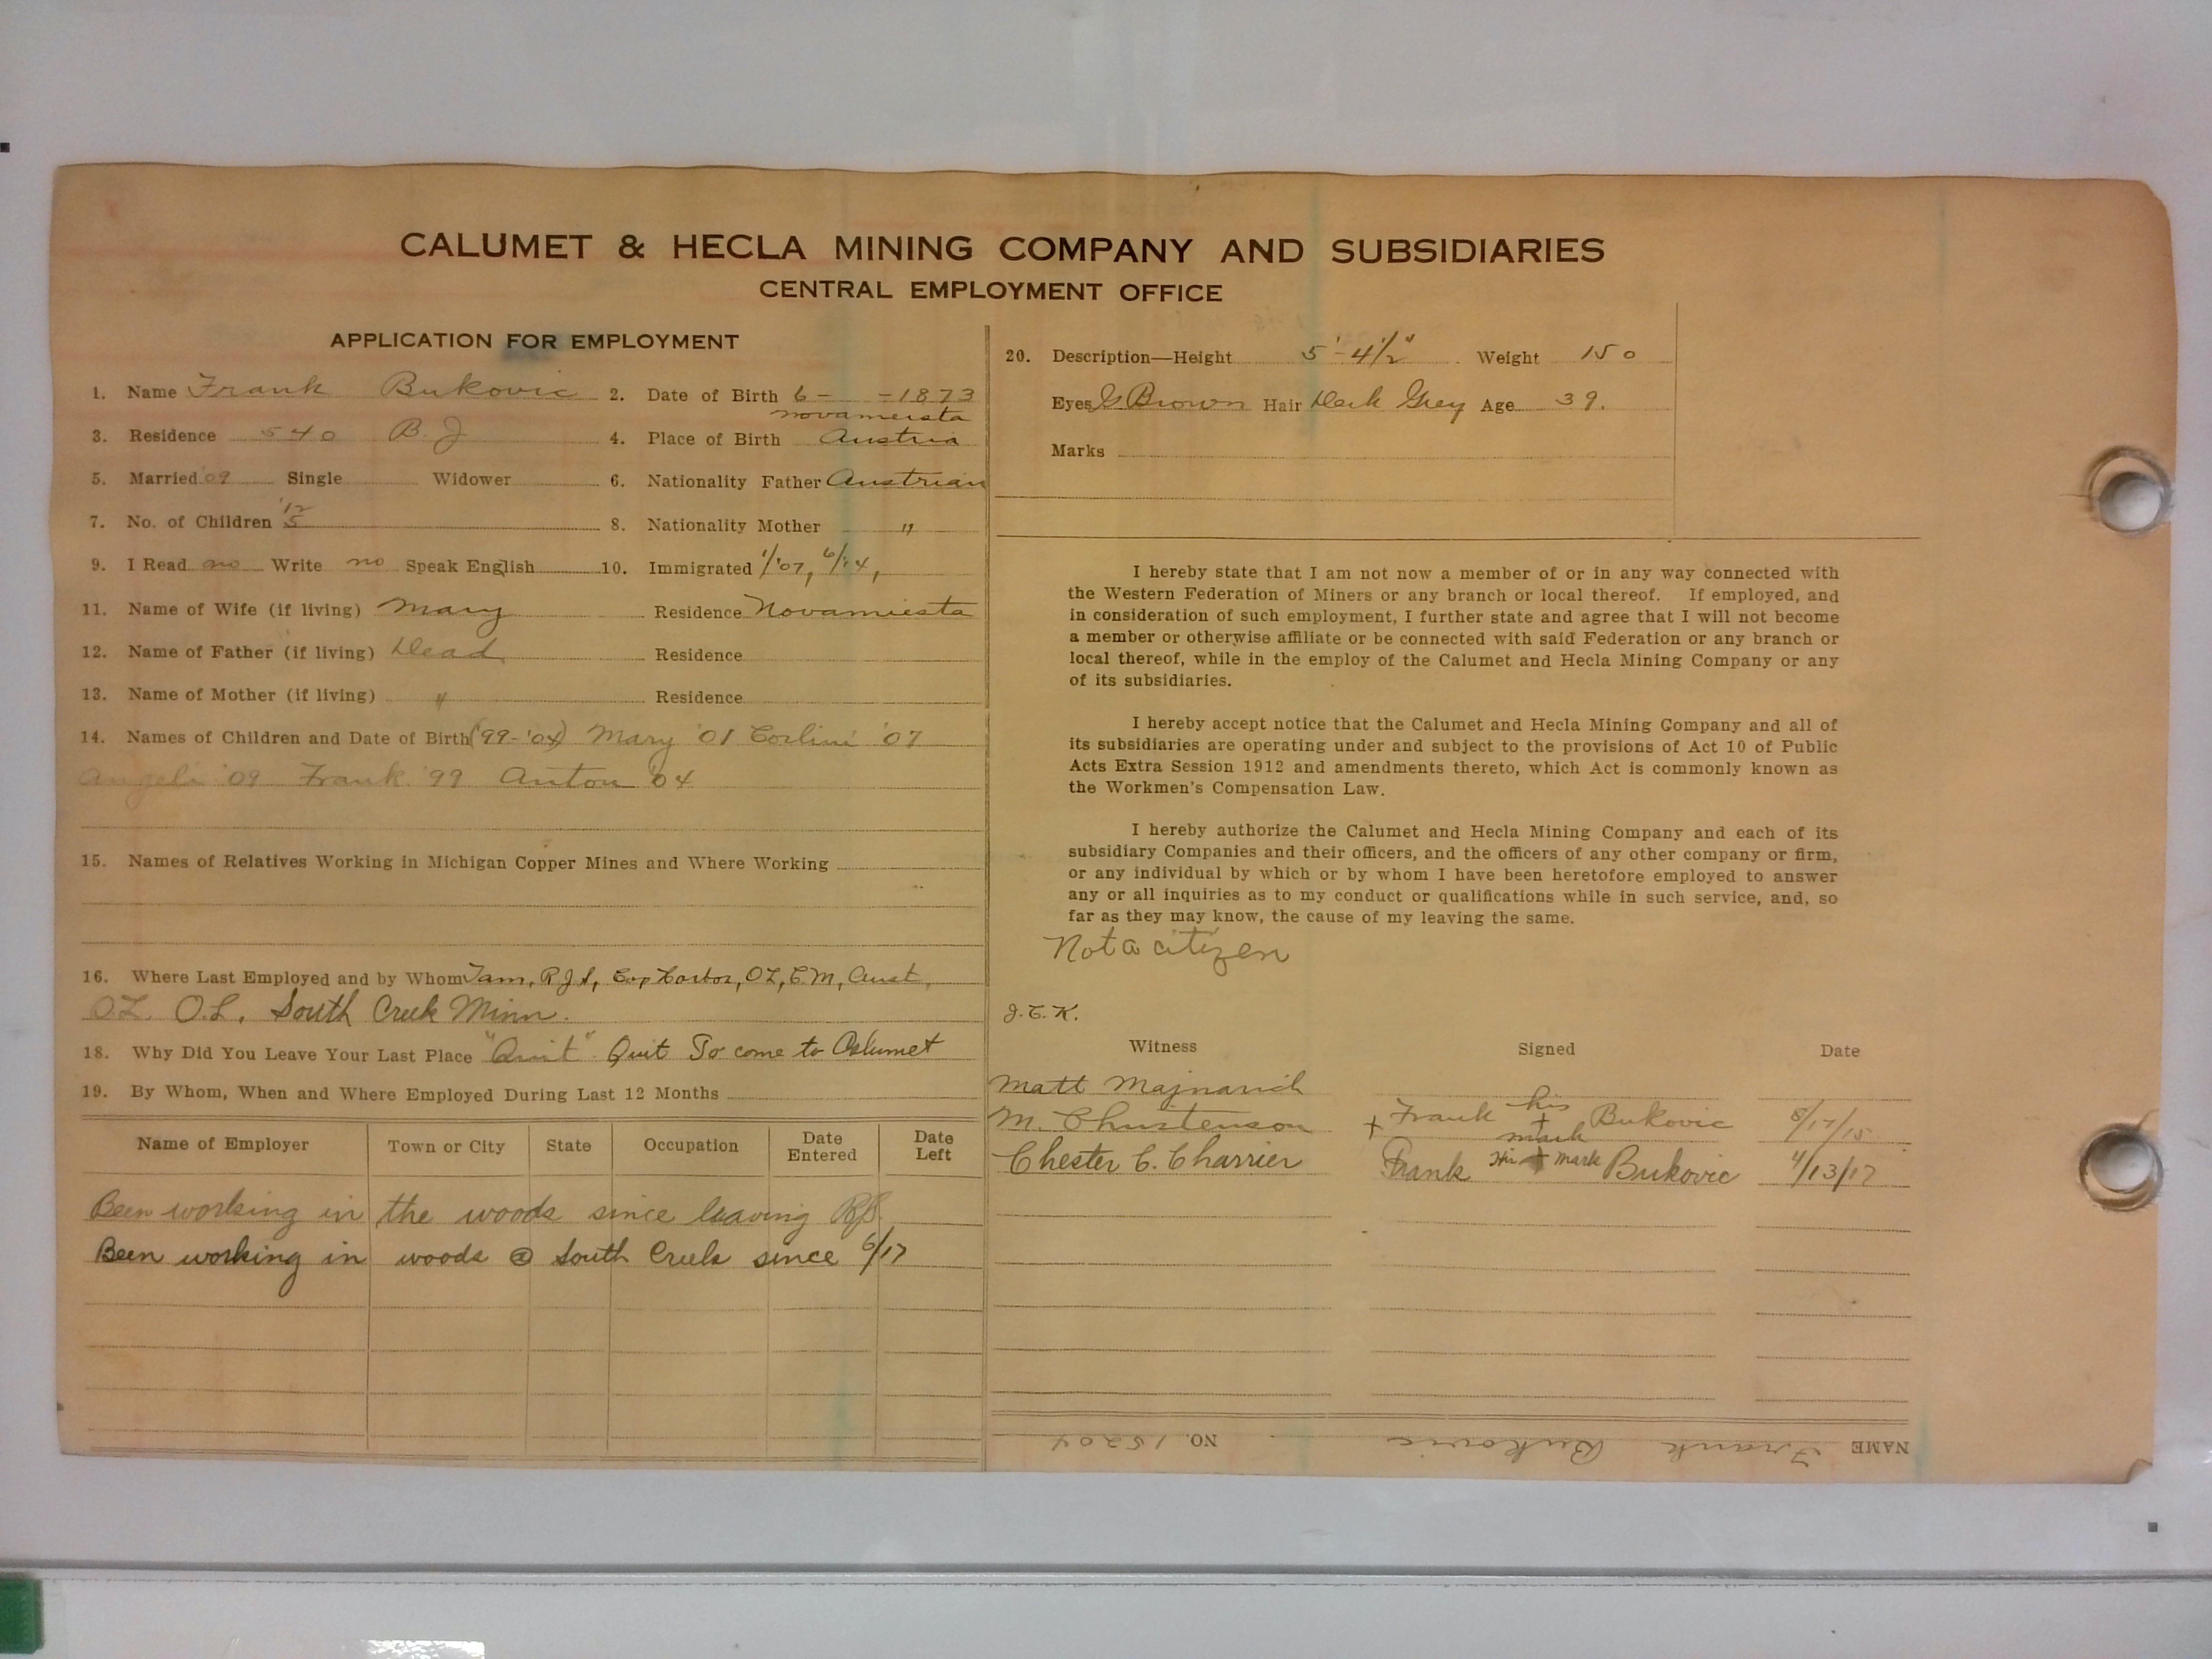 CALUMET & HECLA MINING COMPANY AND SUBSIDIARIES
CENTRAL EMPLOYMENT OFFICE
APPLICATION FOR EMPLOYMENT
1. Name Frank Bukovic 2. Date of Birth 6- -1873
novamiesta
3. Residence 540 B.J 4. Place of Birth Austria
5. Married '09 Single Widower 6. Nationality Father Austrian
'12
7. No. of Children 5 8. Nationality Mother "
9. I Read no Write no Speak English 10. Immigrated 1/'07, 6/'14,
11. Name of Wife (if living) Mary Residence Novamiesta
12. Name of Father (if living) Dead Residence
13. Name of Mother (if living) " Residence
14. Names of Children and Date of Birth ('99-'04) Mary '01 '07
Angeli '09 Frank '99 Anton '04
15. Names of Relatives Working in Michigan Copper Mines and Where Working
16. Where Last Employed and by Whom Tam, R.J.S, Cop Harbor, OL, C.M, Aust,
O.L. O.L. South Creek Minn.
18. Why Did You Leave Your Last Place "Quit" Quit To come to Calumet
19. By Whom, When and Where Employed During Last 12 Months
Name of Employer Town or City State Occupation Date Entered Date Left
Been working in the woods since leaving
Been working in woods @ South Creek since 6/17
20. Description—Height 5'-4½" Weight 150
Eyes Brown Hair Dark Grey Age 39.
Marks
I hereby state that I am not now a member of or in any way connected with
the Western Federation of Miners or any branch or local thereof. If employed, and
in consideration of such employment, I further state and agree that I will not become
a member or otherwise affiliate or be connected with said Federation or any branch or
local thereof, while in the employ of the Calumet and Hecla Mining Company or any
of its subsidiaries.
I hereby accept notice that the Calumet and Hecla Mining Company and all of
its subsidiaries are operating under and subject to the provisions of Act 10 of Public
Acts Extra Session 1912 and amendments thereto, which Act is commonly known as
the Workmen's Compensation Law.
I hereby authorize the Calumet and Hecla Mining Company and each of its
subsidiary Companies and their officers, and the officers of any other company or firm,
or any individual by which or by whom I have been heretofore employed to answer
any or all inquiries as to my conduct or qualifications while in such service, and, so
far as they may know, the cause of my leaving the same.
Not a citizen
J.E.K.
Witness Signed Date
Matt Majnarich
M. Christenson + Frank his + mark Bukovic 8/17/15
Chester C. Charrier Frank His + mark Bukovic 4/13/17
NAME Frank Bukovic NO. 15204